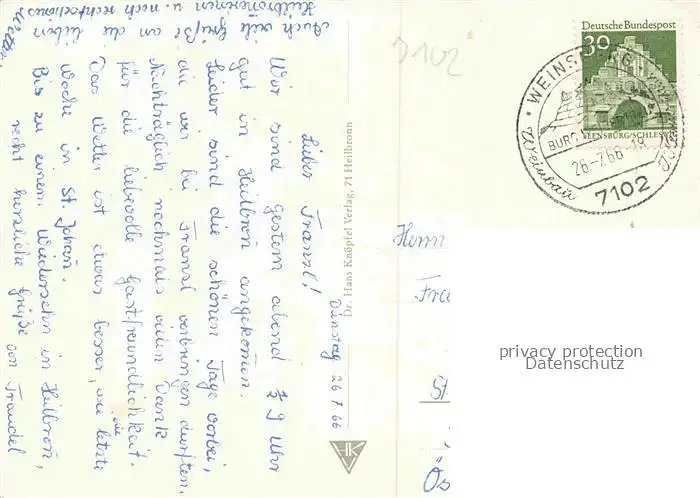 Dienstag 26.7.66
Lieber Franzl!
Wir sind gestern abend ½ 9 Uhr
gut in Heilbronn angekommen.
Leider sind die schönen Tage vorbei,
die wir bei Franzl verbringen durften.
Nachträglich nochmals vielen Dank
für die liebevolle Gastfreundlichkeit.
Das Wetter ist etwas besser, wie die letzte
Woche in St. Johann.
Bis zu einem Wiedersehn in Heilbronn,
recht herzliche Grüße von Traudel
Auch viele Grüße an die lieben
Heilbronnerinnen u. noch rechtschönes
Wetter
Dr. Hans Knöpfel Verlag, 71 Heilbronn
HK
D102
Deutsche Bundespost
30
FLENSBURG/SCHLESW
WEINSBERG
BURG
26.-7.66-19
Weinbau
7102
Herrn
Fra
St
Ös
privacy protection
Datenschutz